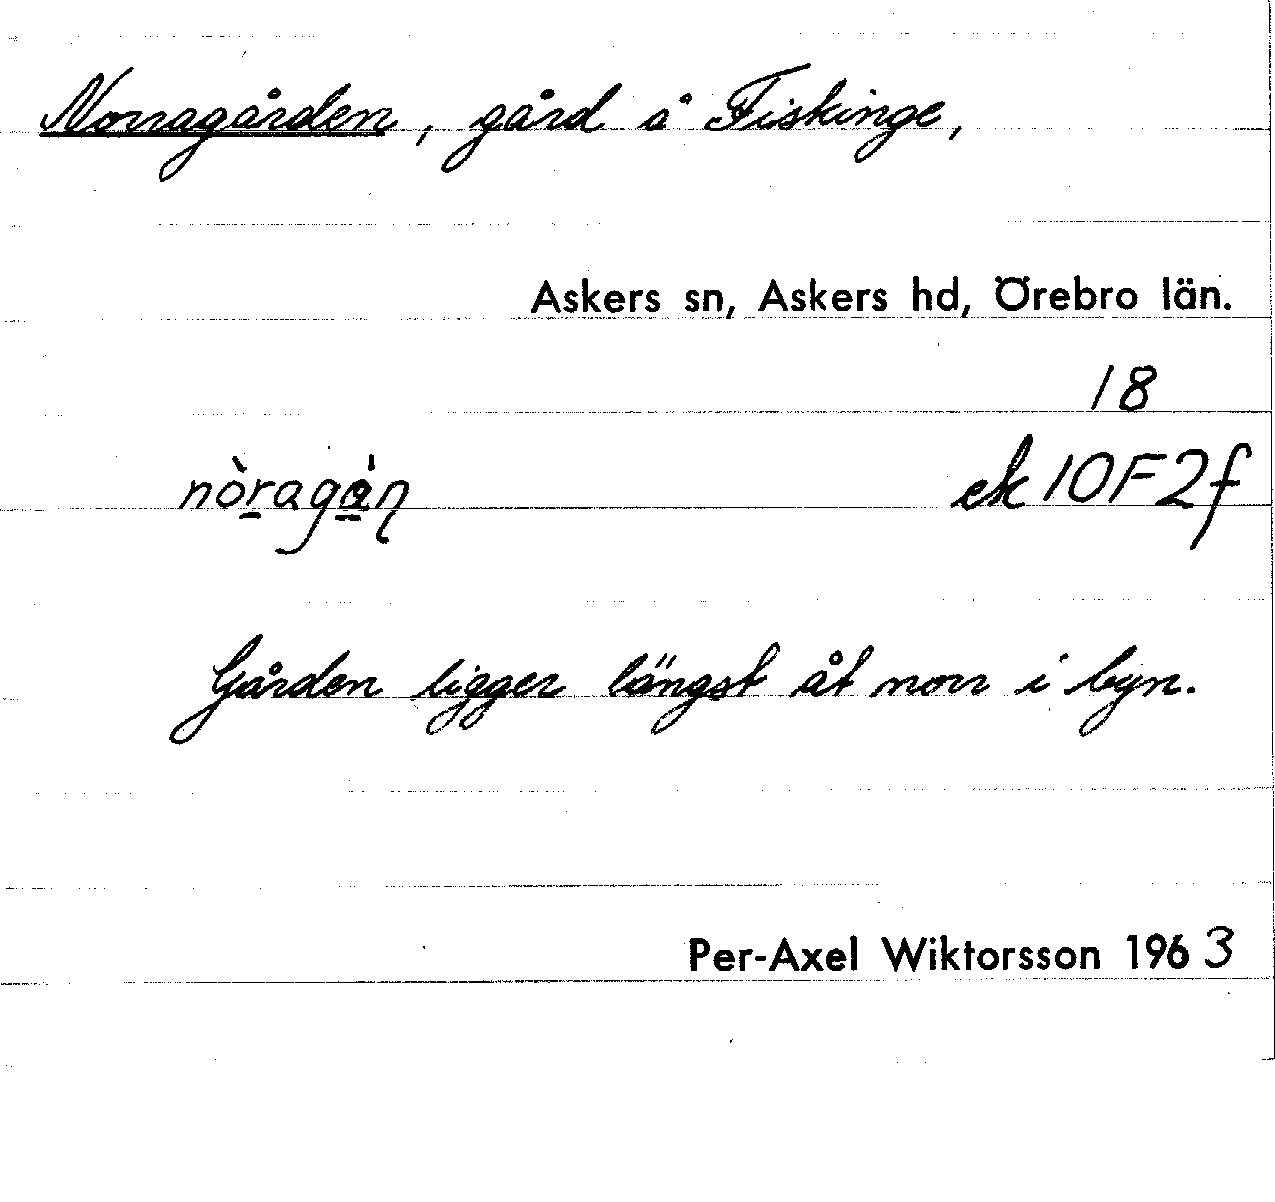 Norragården, gård å Fiskinge,
Askers sn, Askers hd, Örebro län.
18
nòragán ek 10F2f
Gården ligger längst åt norr i byn.
Per-Axel Wiktorsson 1963